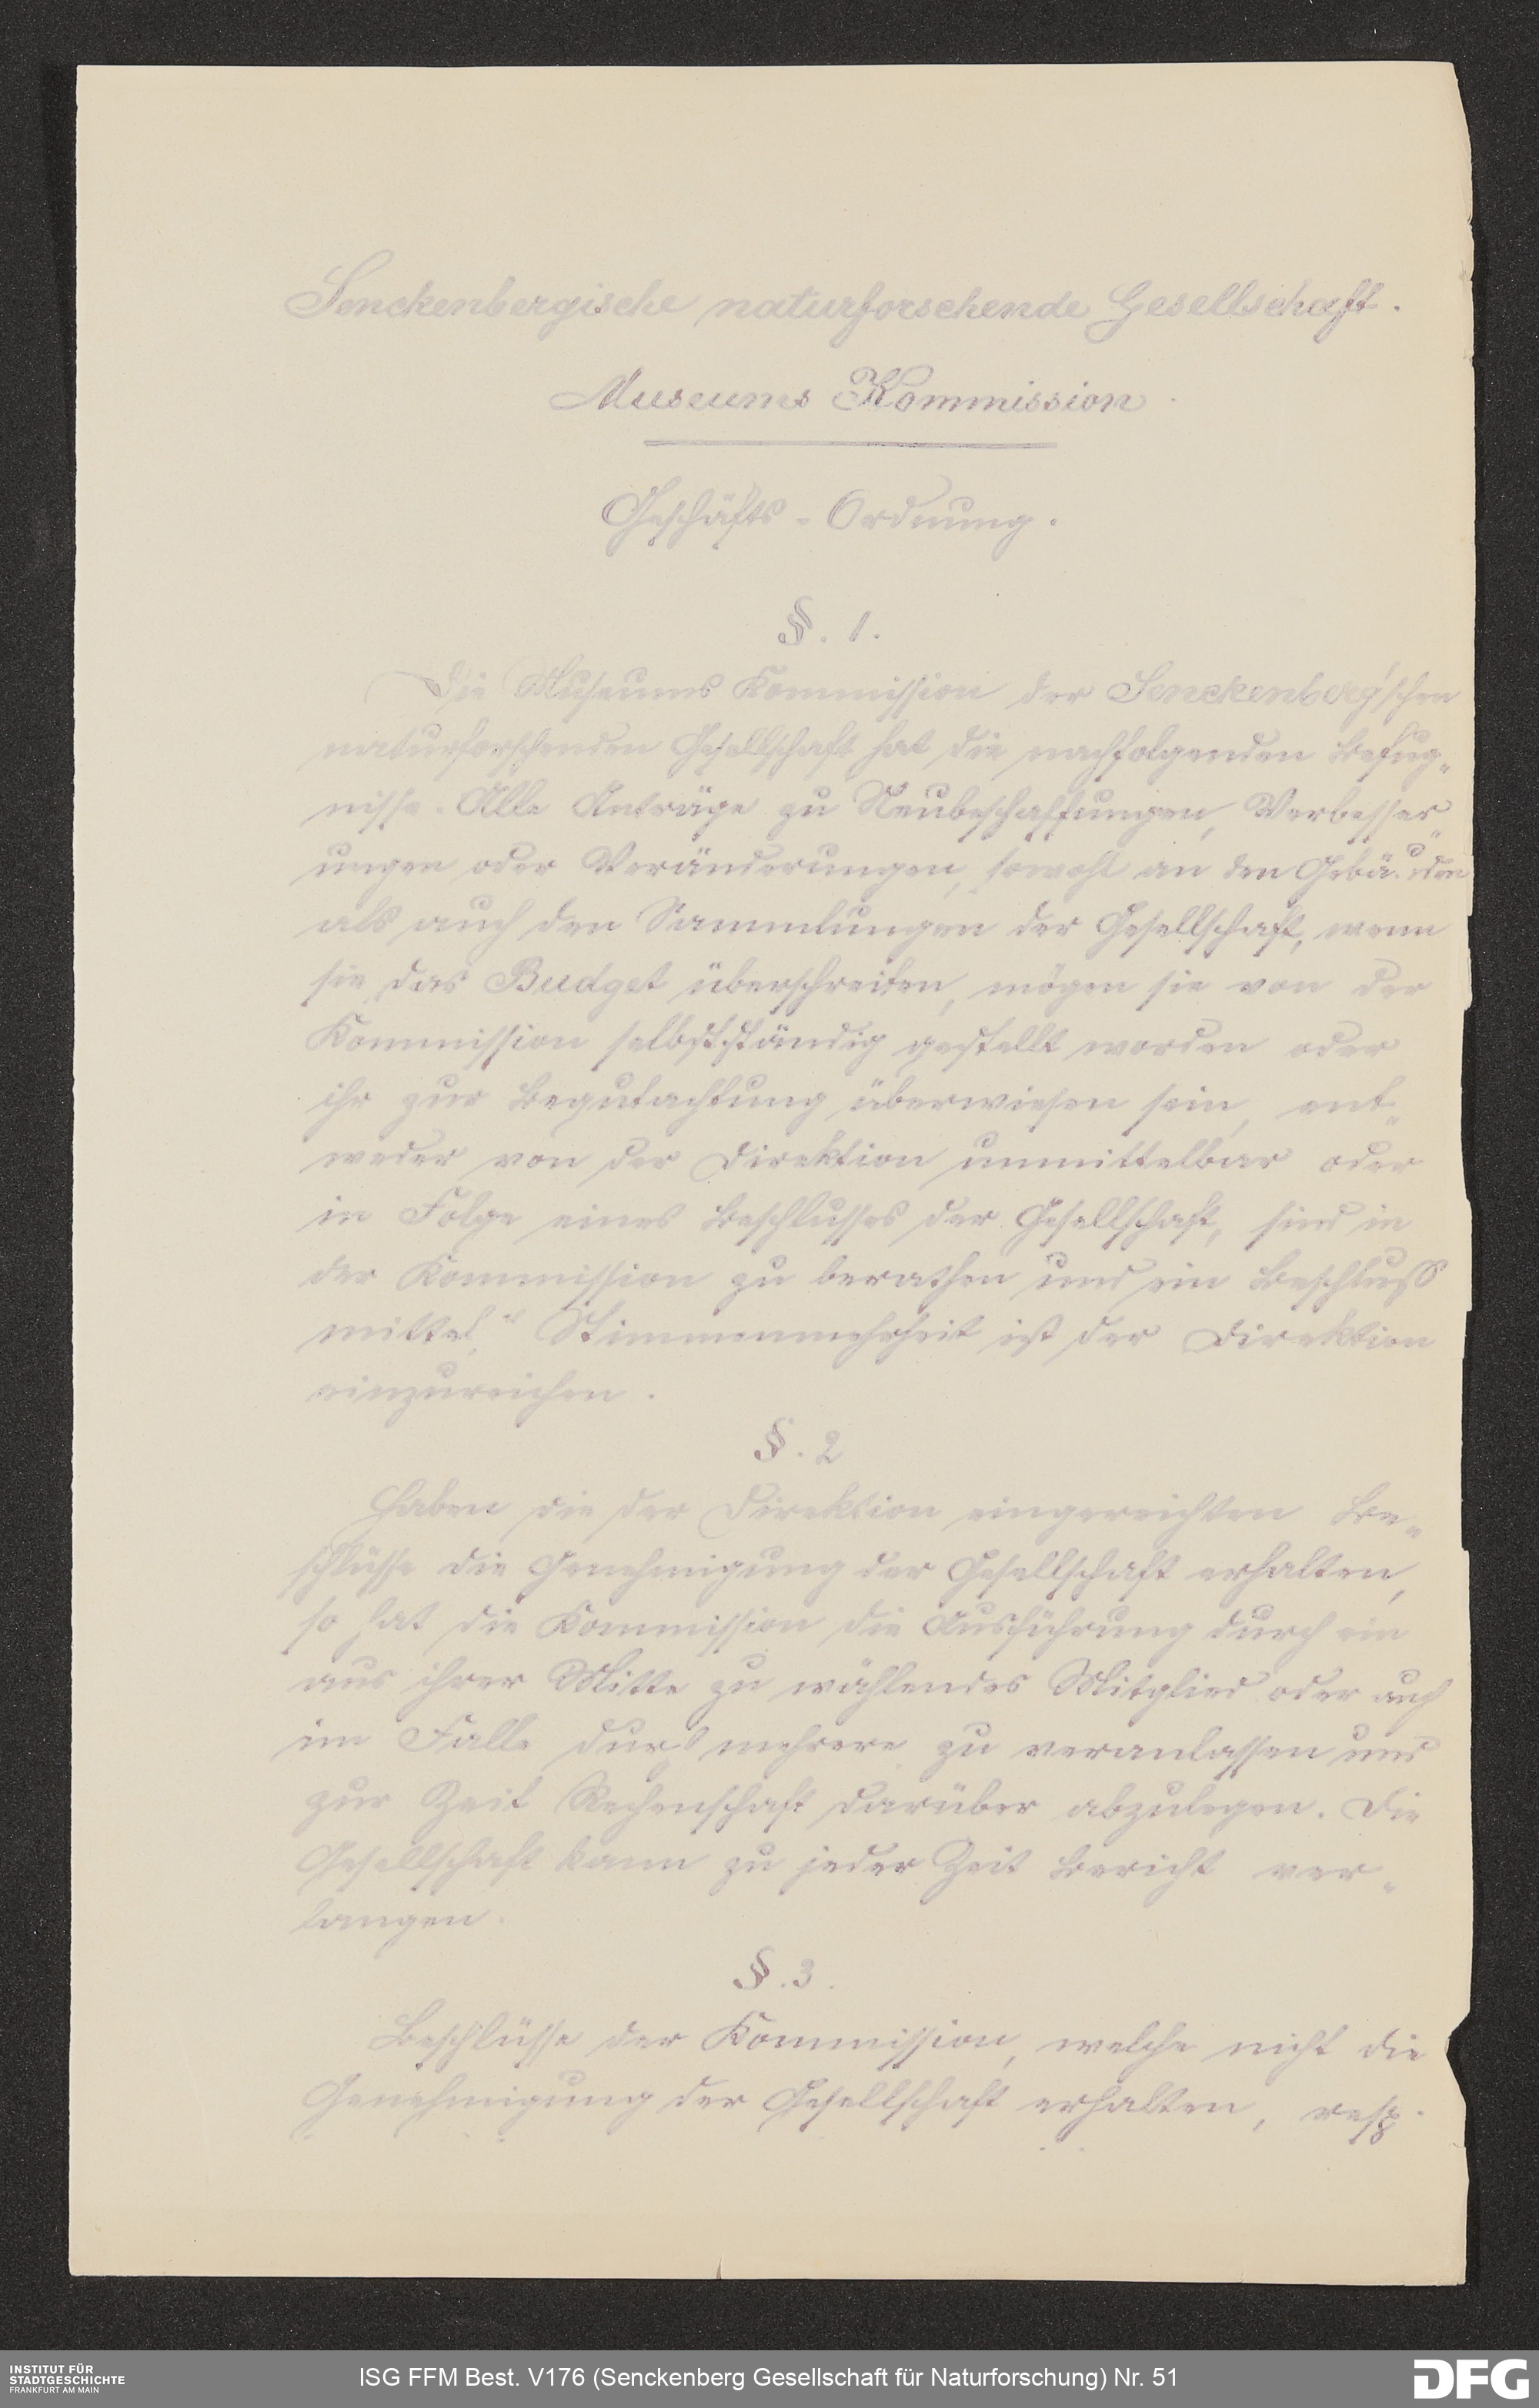 Senckenbergische naturforschende Gesellschaft.
Museums Kommission
Geschäfts-Ordnung.
§. 1.
Die Museums Kommission der Senckenberg'schen
naturforschenden Gesellschaft hat die nachfolgenden Befug„
nisse. Alle Anträge zu Neubeschaffungen, Verbesser„
ungen oder Veränderungen, sowohl an den Gebäuden
als auch den Sammlungen der Gesellschaft, wenn
sie das Budget überschreiten, mögen sie von der
Kommission selbstständig gestellt worden oder
ihr zur Begutachtung überwiesen sein, ent„
weder von der Direktion unmittelbar oder
in Folge eines Beschlusses der Gesellschaft, sind in
der Kommission zu berathen und ein Beschluss
mittelst Stimmenmehrheit ist der Direktion
einzureichen.
§. 2
Haben die der Direktion eingereichten Be„
schlüsse die Genehmigung der Gesellschaft erhalten,
so hat die Kommission die Ausführung durch ein
aus ihrer Mitte zu wählendes Mitglied oder auch
im Falle durch mehrere zu veranlassen und
zur Zeit Rechenschaft darüber abzulegen. Die
Gesellschaft kann zu jeder Zeit Bericht ver„
langen.
§. 3.
Beschlüsse der Kommission, welche nicht die
Genehmigung der Gesellschaft erhalten, resp.
INSTITUT FÜR
STADTGESCHICHTE
FRANKFURT AM MAIN
ISG FFM Best. V176 (Senckenberg Gesellschaft für Naturforschung) Nr. 51
DFG